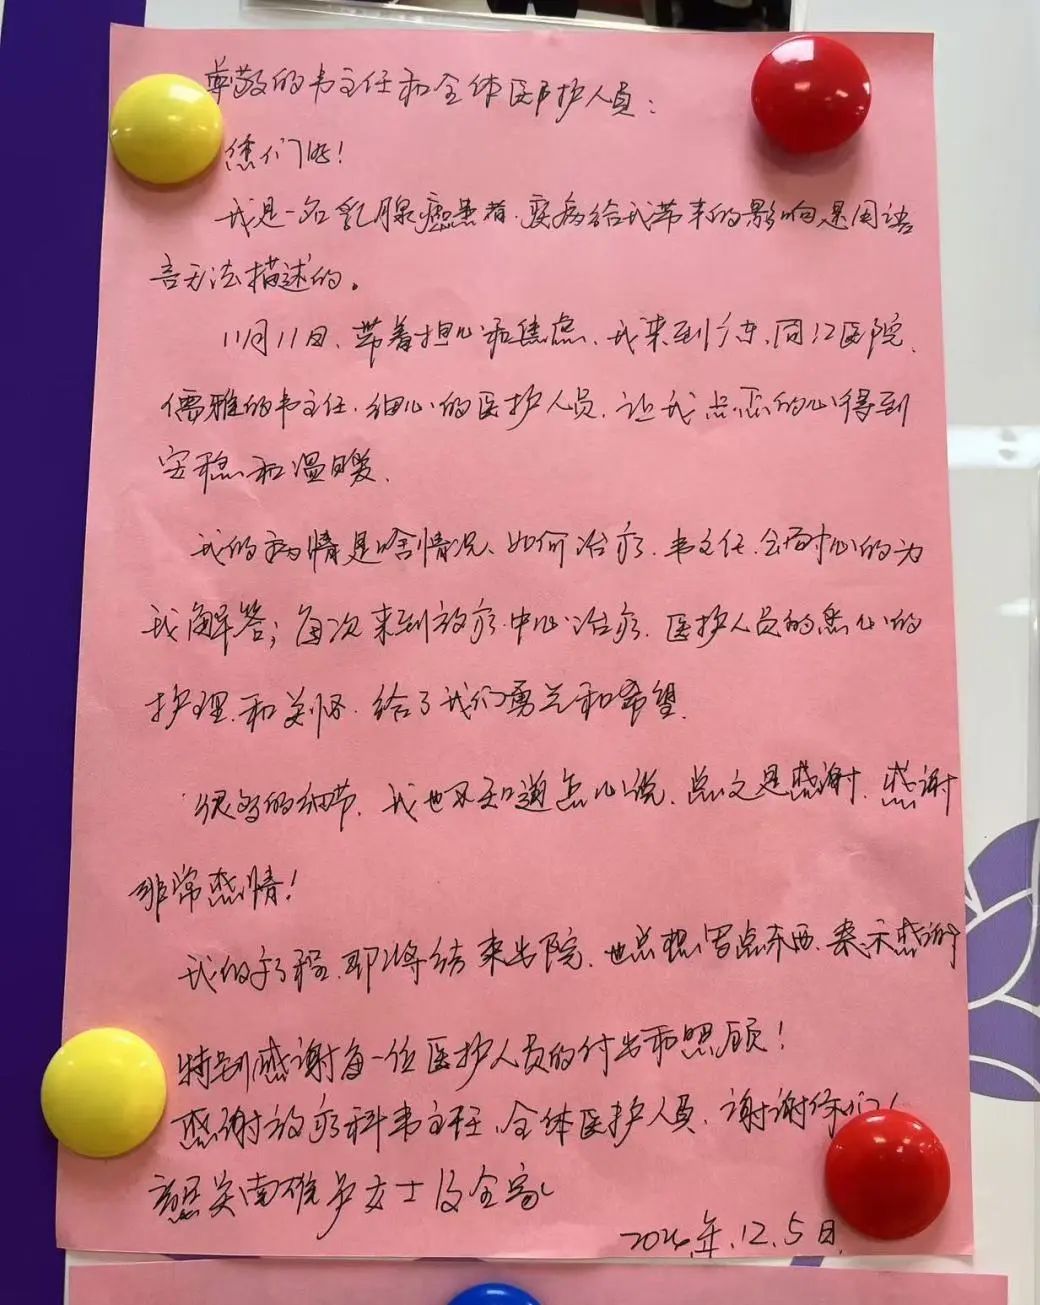 尊敬的韦主任和全体医护人员：
您们好！
我是一名乳腺癌患者，疾病给我带来的影响是用语
言无法描述的。
11月11日，带着担心和焦虑，我来到广东同江医院，
儒雅的韦主任，细心的医护人员，让我忐忑的心得到
安稳和温暖。
我的病情是啥情况，如何治疗，韦主任会耐心的为
我解答；每次来到放疗中心治疗，医护人员的悉心的
护理和关怀，给了我们勇气和希望。
很多的细节，我也不知道怎么说，总之是感谢，感谢
非常感情！
我的疗程即将结束出院，也想写点东西，表示感谢
特别感谢每一位医护人员的付出和照顾！
感谢放疗科韦主任，全体医护人员，谢谢你们！
韶关南雄 女士及全家
2024年.12.5日